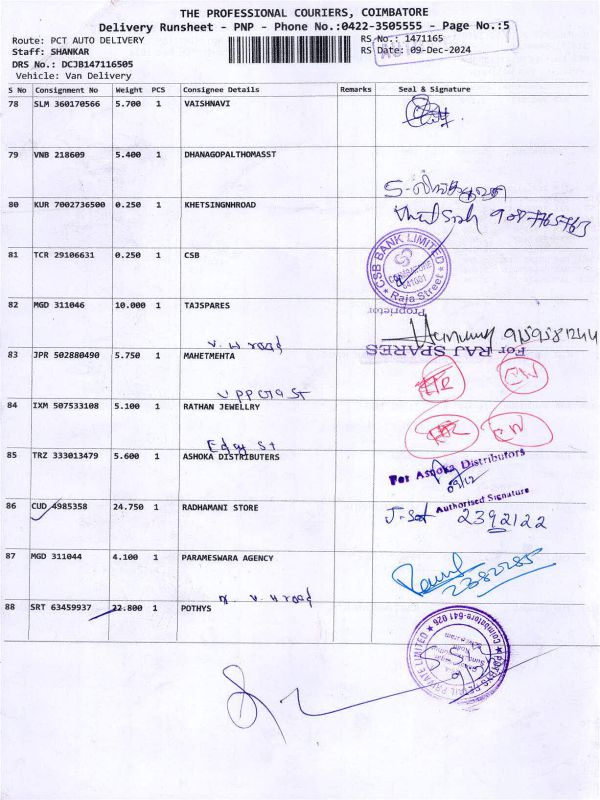 THE PROFESSIONAL COURIERS, COIMBATORE
Delivery Runsheet - PNP - Phone No.:0422-3505555 - Page No.:5
Route: PCT AUTO DELIVERY
RS No.: 1471165
Staff: SHANKAR
RS Date: 09-Dec-2024
DRS No.: DCJB147116505
Vehicle: Van Delivery
S No Consignment No Weight PCS Consignee Details Remarks Seal & Signature
78 SLM 360170566 5.700 1 VAISHNAVI
79 VNB 218609 5.400 1 DHANAGOPALTHOMASST
80 KUR 7002736500 0.250 1 KHETSINGNHROAD
81 TCR 29106631 0.250 1 CSB
CSB BANK LIMITED
COIMBATORE
641001
Raja Street
82 MGD 311046 10.000 1 TAJSPARES
Proprietor
V. H road
For RAJ SPARES
83 JPR 502880490 5.750 1 MAHETMEHTA
EW
84 IXM 507533108 5.100 1 RATHAN JEWELLRY
EW
85 TRZ 333013479 5.600 1 ASHOKA DISTRIBUTERS
For Ashoka Distributors
09/12
Authorised Signature
86 CUD 4985358 24.750 1 RADHAMANI STORE
2392122
87 MGD 311044 4.100 1 PARAMESWARA AGENCY
2382285
V. H road
88 SRT 63459937 22.800 1 POTHYS
POTHYS RETAIL PRIVATE LIMITED
Coimbatore-641 026